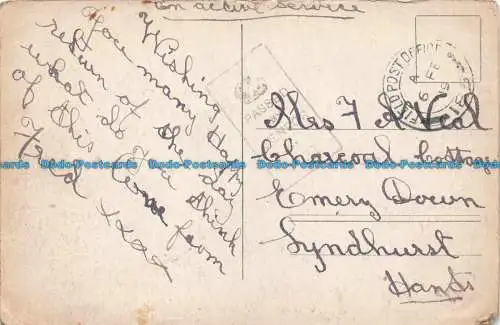 On active service
Wishing
you many Happy
return of the day
what do you think
of this Love from
Fred xxxx
PASSED
CENSOR
FIELD POST OFFICE
6 FE
19
Mrs F A Veal
Charcoal Cottage
Emery Down
Lyndhurst
Hants
Bido-Postcards.com Bido-Postcards.com Bido-Postcards.com Bido-Postcards.com Bido-Postcards.com